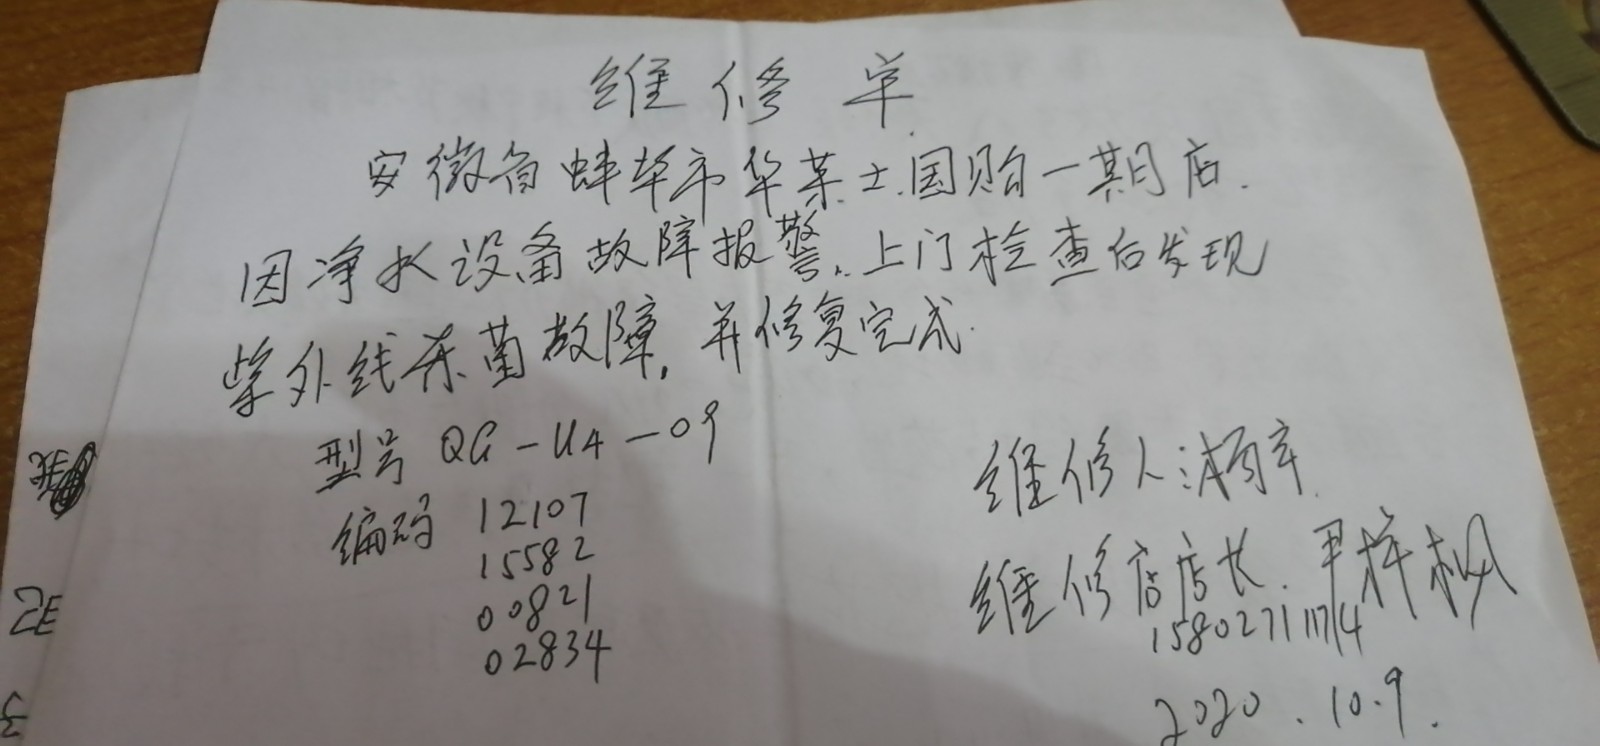 维修单
安徽省蚌埠市华莱士.国购一期店.
因净水设备故障报警,上门检查后发现
紫外线杀菌故障,并修复完成.
型号 QG-U4-09
编码 12107
15582
00821
02834
维修人:
维修店店长.
2020.10.9.